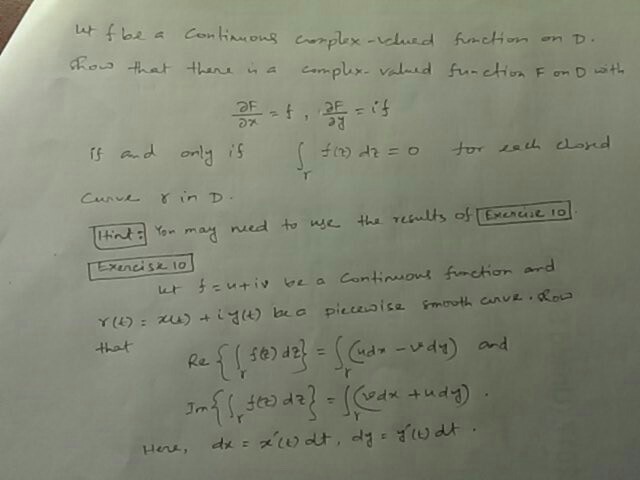 Let f be a Continuous complex-valued function on D.
Show that there is a complex-valued function F on D with
∂F/∂x = f , ∂F/∂y = if
if and only if ∫_γ f(z) dz = 0 for each closed
curve γ in D.
Hint: You may need to use the results of Exercise 10.
Exercise 10
Let f = u+iv be a Continuous function and
γ(t) = x(t) + i y(t) be a piecewise smooth curve. Show
that
Re { ∫_γ f(z) dz } = ∫_γ (udx - vdy) and
Im { ∫_γ f(z) dz } = ∫_γ (vdx + udy) .
Here, dx = x'(t) dt, dy = y'(t) dt .